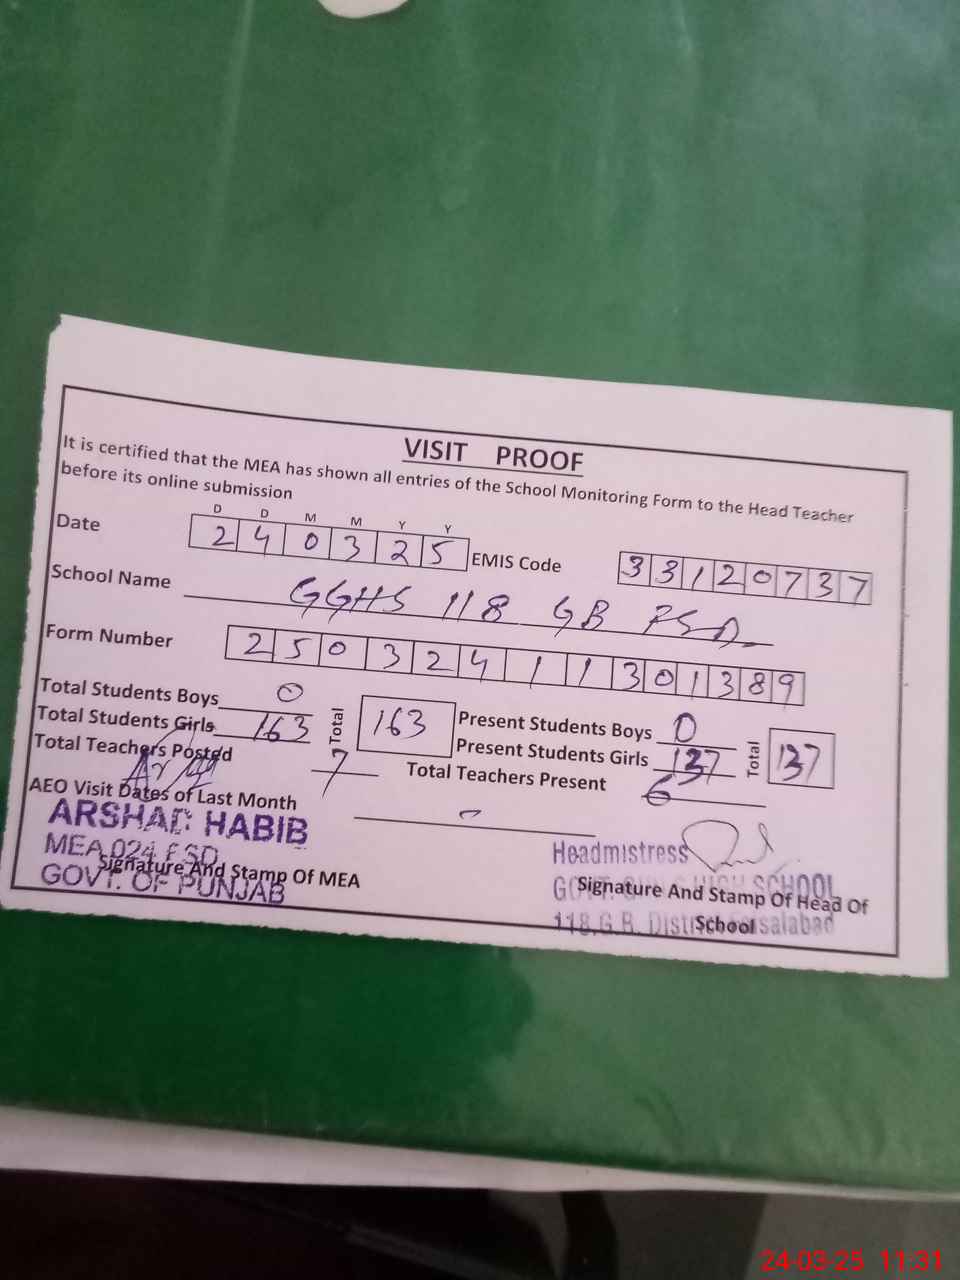 VISIT PROOF
It is certified that the MEA has shown all entries of the School Monitoring Form to the Head Teacher
before its online submission
D D M M Y Y
Date 2 4 0 3 2 5 EMIS Code 3 3 1 2 0 7 3 7
School Name GGHS 118 GB FSD
Form Number 2 5 0 3 2 4 1 1 3 0 1 3 8 9
Total Students Boys 0 Present Students Boys 0
Total Students Girls 163 Total 163 Present Students Girls 137 Total 137
Total Teachers Posted 7 Total Teachers Present 6
AEO Visit Dates of Last Month -
ARSHAD HABIB
MEA 024 FSD
GOVT. OF PUNJAB
Signature And Stamp Of MEA
Headmistress
GOVT. HIGH SCHOOL
118, G.B. District Faisalabad
Signature And Stamp Of Head Of
School
24-03-25 11:31